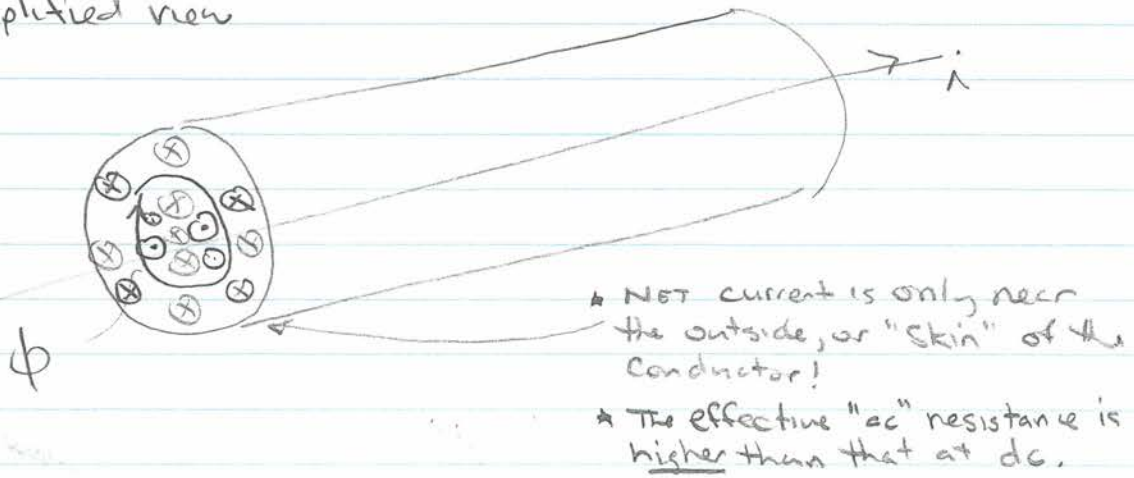 plified view
i
ϕ
* NET current is only near
the outside, or "Skin" of the
Conductor!
* The effective "ac" resistance is
higher than that at dc.